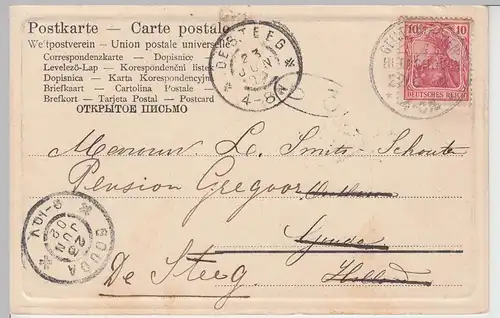 Postkarte — Carte postale
Weltpostverein — Union postale universelle
Correspondenzkarte — Dopisnice
Levelező-Lap — Korespondenční lístek
Dopisnica — Karta Korespondencyjna
Briefkaart — Cartolina Postale
Brefkort — Tarjeta Postal — Postcard
ОТКРЫТОЕ ПИСЬМО
DE STEEG
23
JUN
02
4-8N
10 10
DEUTSCHES REICH
Mevrouw L. Smits-Schouten
Pension Gregoor
Gouda
Holland
De Steeg.
GOUDA
23
JUN
02
8-10V